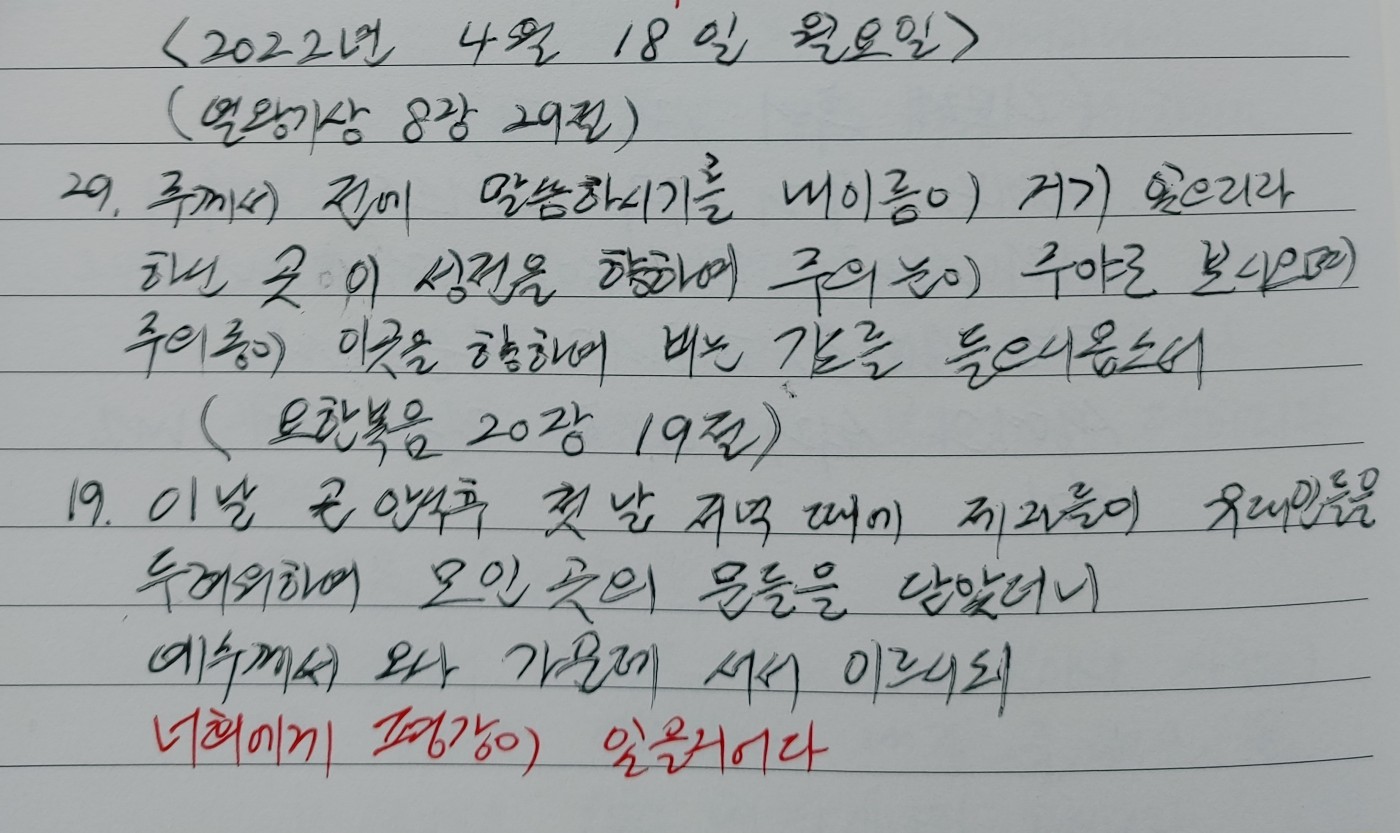 <2022년 4월 18일 월요일>
(열왕기상 8장 29절)
29. 주께서 전에 말씀하시기를 내이름이 거기 있으리라
하신 곳 이 성전을 향하여 주의 눈이 주야로 보시오며
주의 종이 이곳을 향하여 비는 기도를 들으시옵소서
(요한복음 20장 19절)
19. 이날 곧 안식후 첫 날 저녁 때에 제자들이 유대인들을
두려워하여 모인 곳의 문들을 닫았더니
예수께서 와나 가운데 서서 이르시되
너희에게 평강이 있을지어다